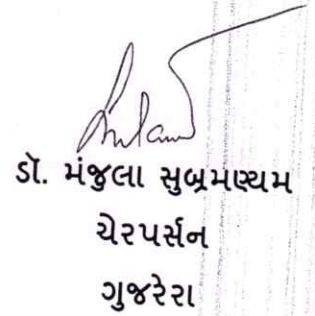 ડૉ. મંજુલા સુબ્રમણ્યમ
ચેરપર્સન
ગુજરેરા